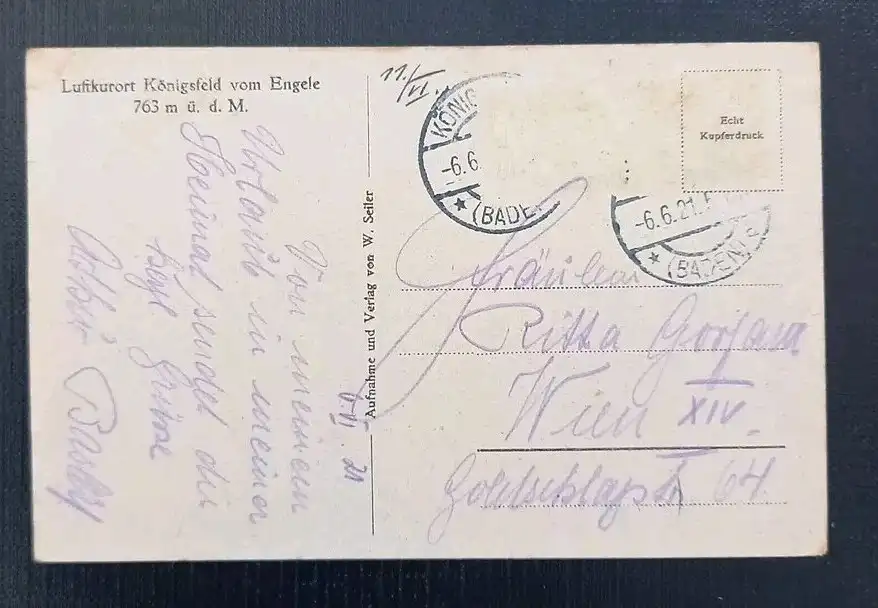 Luftkurort Königsfeld vom Engele
763 m ü. d. M.
11./VI.
KÖNIG
-6.6
(BADE
Echt
Kupferdruck
-6.6.21.5
(BADEN)
Aufnahme und Verlag von W. Seiler
6.VI.21
Von meinem
Urlaub in meiner
Heimat sendet dir
herzl. Grüsse
Arthur
Fräulein
Ritta
Wien XIV.
Goldschlagstr. 64